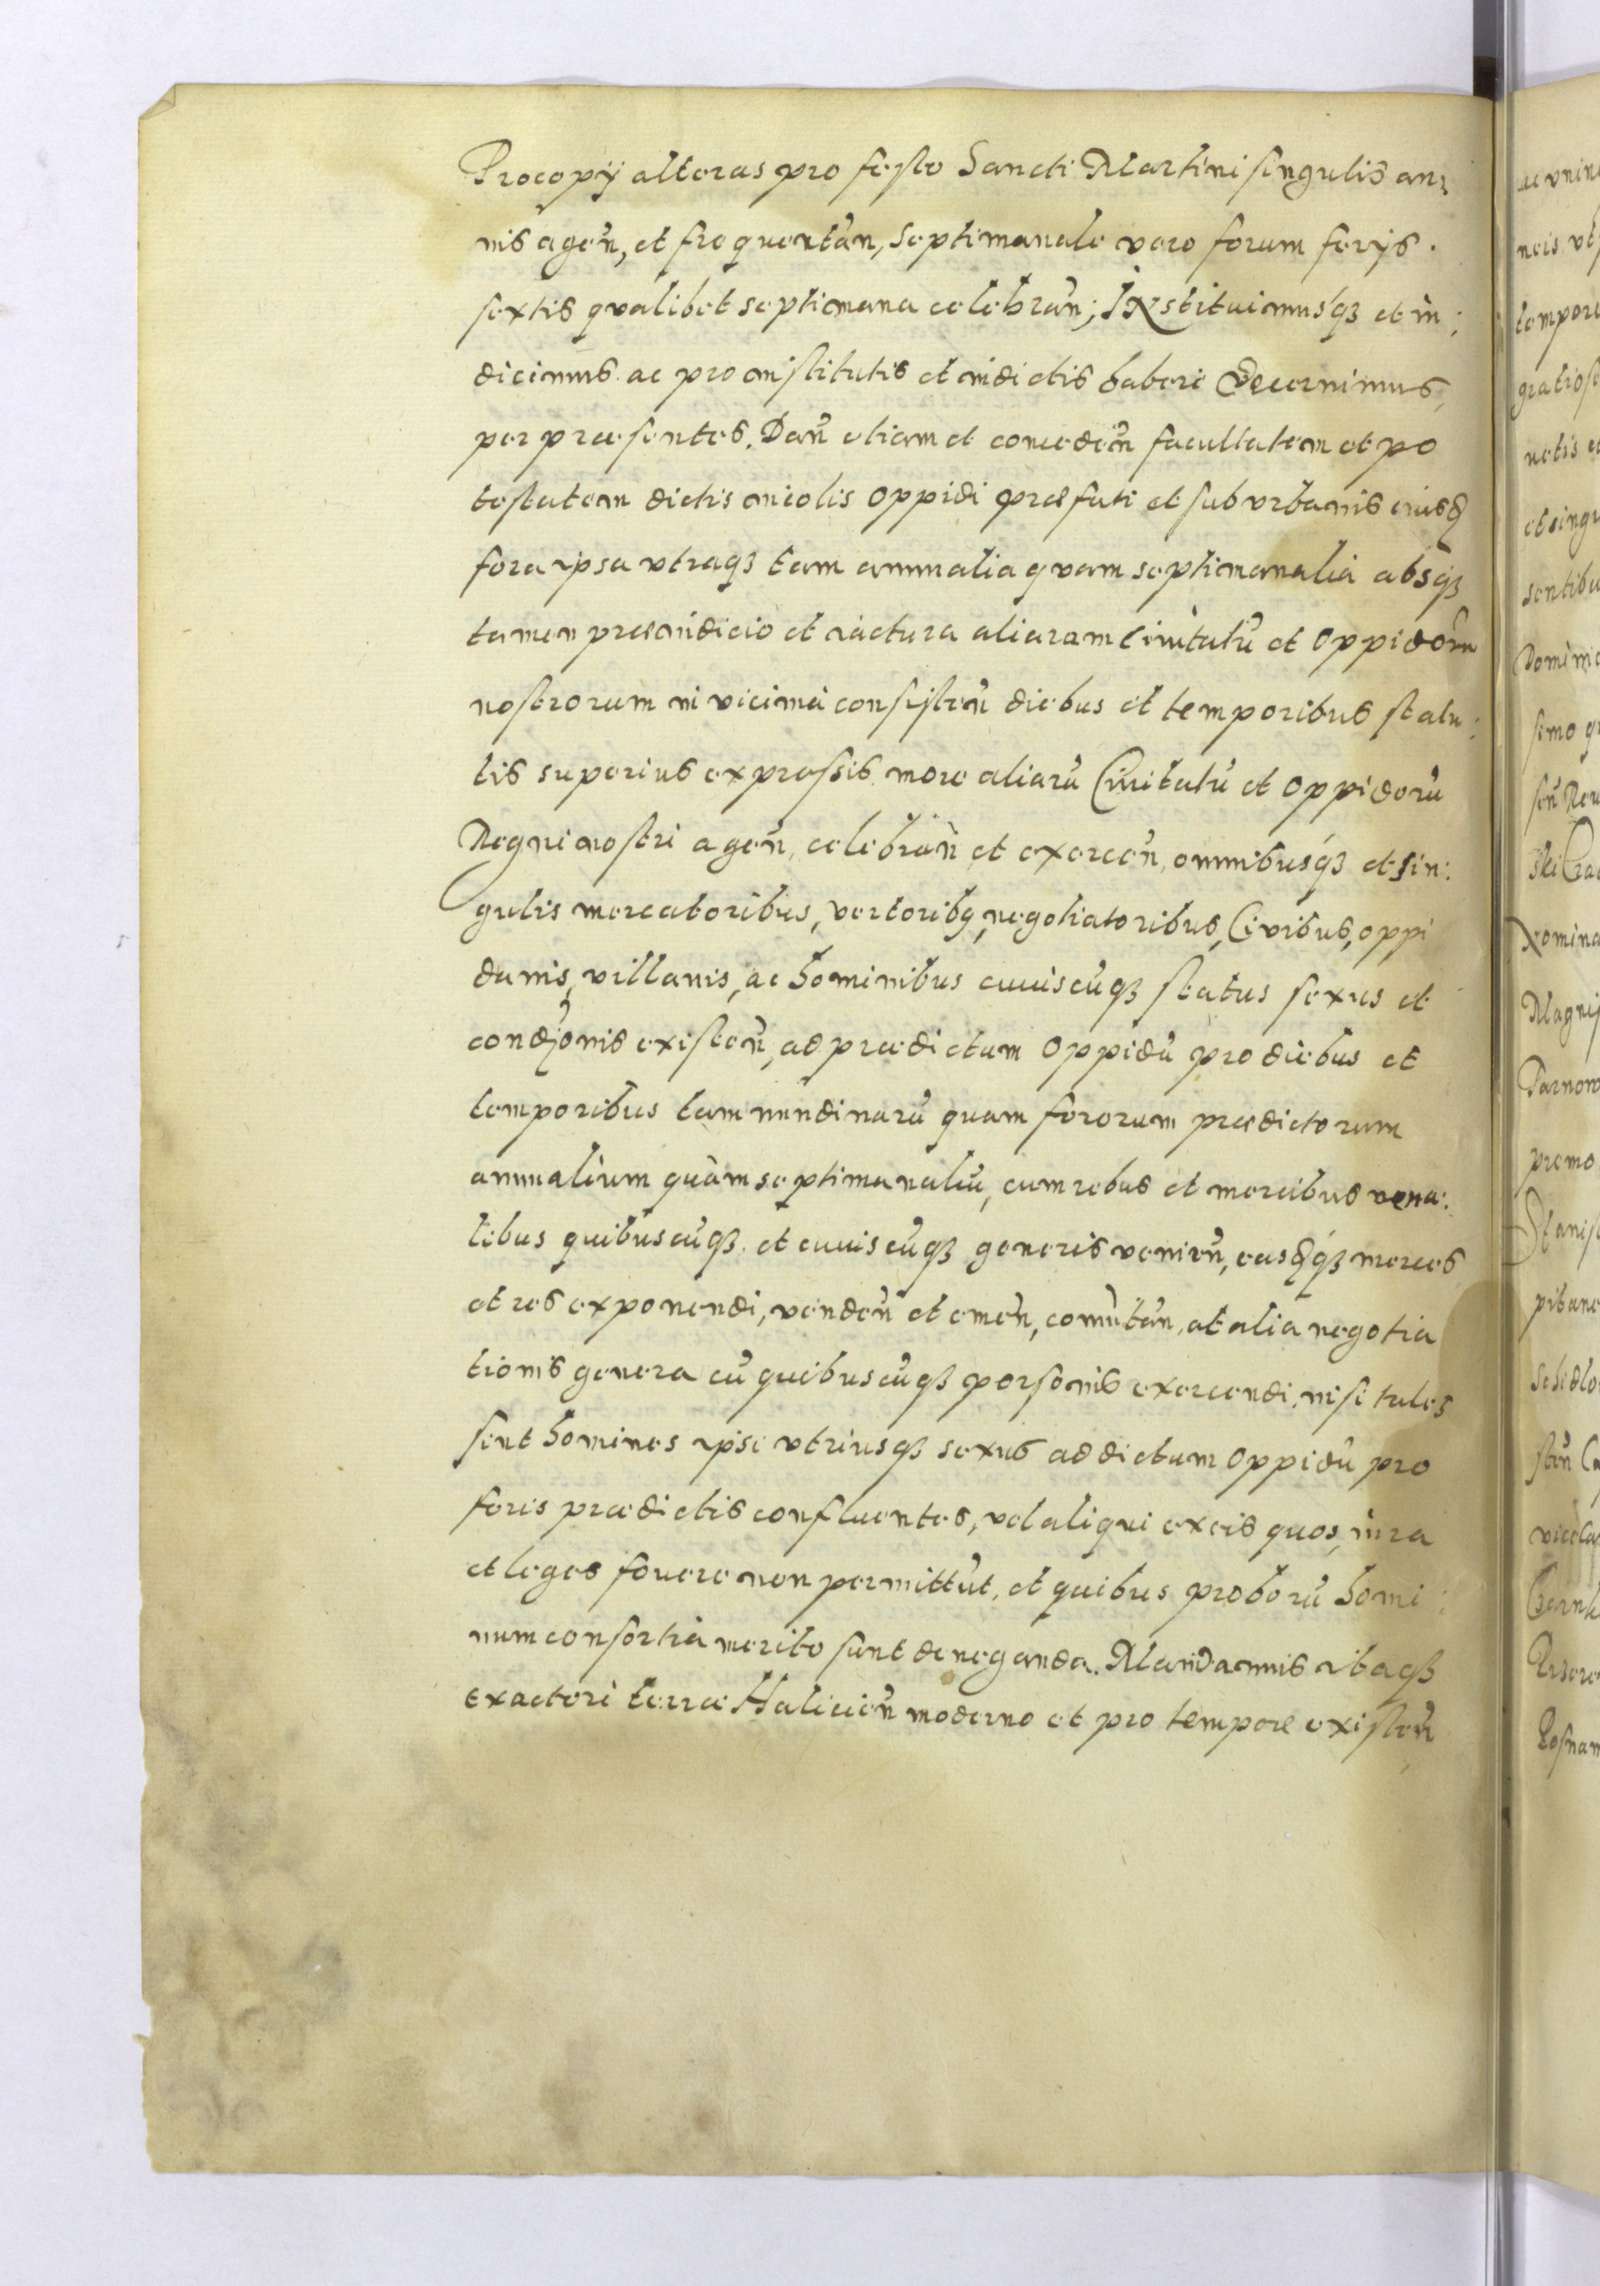 Procopÿ alteras pro festo Sancti Martini singulis an:
nis ageñ, et frequentañ, septimanale vero forum ferÿs.
sextis qualibet septimana celebrañ; INstituimusq3 et in:
dicimus ac pro institutis et indictis haberi Decernimus,
per præsentes. Dañ etiam et concedeñ facultatem et po
testatem dictis incolis Oppidi præfati et suburbanis eiusd
fora ipsa utraq3 tam annualia quam septimanalia absq3
tamen præiudicio et iactura aliaram Ciuitatũ et Oppidorũ
nostrorum in vicinia consisteñ diebus et temporibus statu:
tis superius expressis more aliarũ Ciuitatũ et Oppidorũ
Regni nostri ageñ, celebrañ et exerceñ, omnibusq3 et sin:
gulis mercatoribus, vectorib9, negotiatoribus, Civibus, oppi
danis, villanis, ac hominibus cuiuscũq3 status sexus et
condĩonis existeñ, ad prædictum Oppidũ pro diebus et
temporibus tam nundinarũ quam fororum prædictorum
annualium quàm septimanaliũ, cum rebus et mercibus vena:
libus quibuscũq3 et cuiuscũq3 generis venieñ, easdq3 merces
et res exponendi, vendeñ et emeñ, comũtañ, at alia negotia
tionis genera cũ quibuscũq3 personis exercendi, nisi tales
sint homines ipsi utriusq3 sexus ad dictum Oppidũ pro
foris prædictis confluentes, vel aliqui ex eis quos iura
et leges fovere non permittũt, et quibus proborũ homi:
num consortia merito sunt deneganda. Mandamus itaq3
exactori terræ Halicieñ moderno et pro tempore existeñ